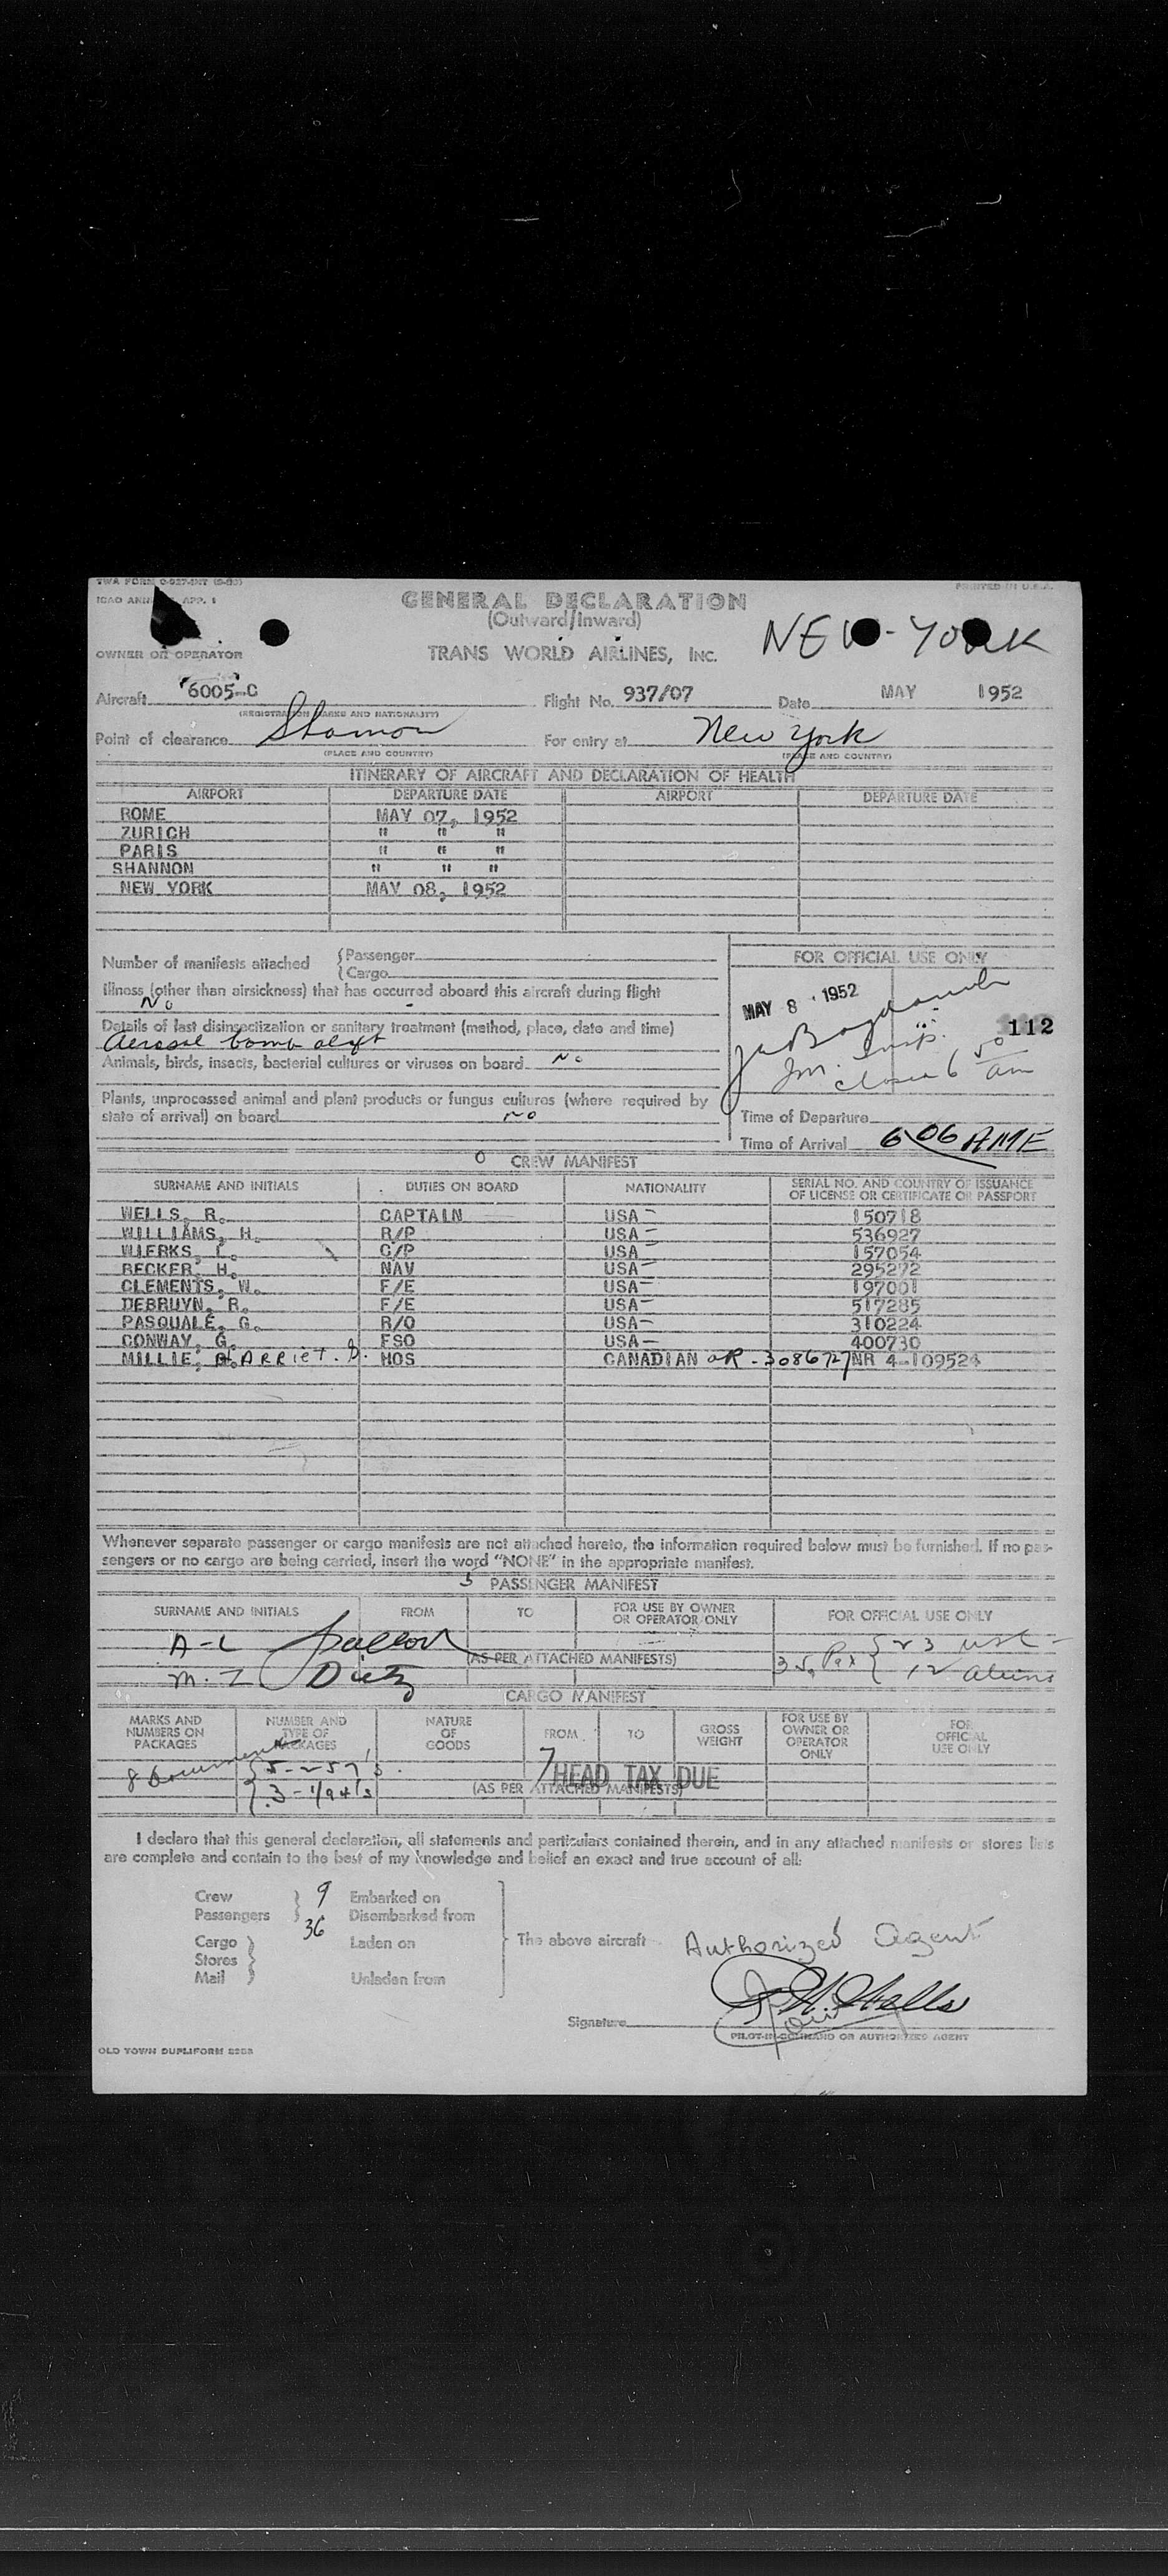 TWA FORM O-927-INT
PRINTED IN U.S.A.
ICAO ANNEX APP. 1
GENERAL DECLARATION
(Outward/Inward)
NEW-YORK
OWNER OR OPERATOR
TRANS WORLD AIRLINES, INC.
Aircraft 6005-C Flight No. 937/07 Date MAY 1952
(REGISTRATION MARKS AND NATIONALITY)
Point of clearance Shannon For entry at New York
(PLACE AND COUNTRY) (PLACE AND COUNTRY)
ITINERARY OF AIRCRAFT AND DECLARATION OF HEALTH
AIRPORT DEPARTURE DATE AIRPORT DEPARTURE DATE
ROME MAY 07, 1952
ZURICH " " "
PARIS " " "
SHANNON " " "
NEW YORK MAY 08, 1952
Number of manifests attached { Passenger
{ Cargo
FOR OFFICIAL USE ONLY
Illness (other than airsickness) that has occurred aboard this aircraft during flight
No
MAY 8 1952
Details of last disinsectization or sanitary treatment (method, place, date and time)
Aerosol bomb aloft
112
Insp.
Animals, birds, insects, bacterial cultures or viruses on board No
closed 6 50 am
Plants, unprocessed animal and plant products or fungus cultures (where required by
state of arrival) on board no
Time of Departure
Time of Arrival 6 06 AME
CREW MANIFEST
SURNAME AND INITIALS DUTIES ON BOARD NATIONALITY SERIAL NO. AND COUNTRY OF ISSUANCE
OF LICENSE OR CERTIFICATE OR PASSPORT
WELLS, R. CAPTAIN USA 150718
WILLIAMS, H. R/P USA 536927
WIERKS, L. C/P USA 157054
BECKER, H. NAV USA 295272
CLEMENTS, W. F/E USA 197001
DEBRUYN, R. F/E USA 517285
PASQUALE, G. R/O USA 310224
CONWAY, G. FSO USA 400730
MILLIE, HARRIET. HOS CANADIAN OR-3086727 NR 4-109524
Whenever separate passenger or cargo manifests are not attached hereto, the information required below must be furnished. If no pas-
sengers or no cargo are being carried, insert the word "NONE" in the appropriate manifest.
PASSENGER MANIFEST
SURNAME AND INITIALS FROM TO FOR USE BY OWNER
OR OPERATOR ONLY FOR OFFICIAL USE ONLY
A-L
(AS PER ATTACHED MANIFESTS)
35 Pax { 23 USC
{ 12 aliens
M-Z Dietz
CARGO MANIFEST
MARKS AND
NUMBERS ON
PACKAGES NUMBER AND
TYPE OF
PACKAGES NATURE
OF
GOODS FROM TO GROSS
WEIGHT FOR USE BY
OWNER OR
OPERATOR
ONLY FOR
OFFICIAL
USE ONLY
8 Documents { 5-257's
{ 3-I/94's
7 HEAD TAX DUE
(AS PER ATTACHED MANIFESTS)
I declare that this general declaration, all statements and particulars contained therein, and in any attached manifests or stores lists
are complete and contain to the best of my knowledge and belief an exact and true account of all:
Crew 9 Embarked on
Passengers 36 Disembarked from
Cargo Laden on The above aircraft Authorized Agent
Stores
Mail Unladen from
Signature R.H. Wells
PILOT-IN-COMMAND OR AUTHORIZED AGENT
OLD TOWN DUPLIFORM